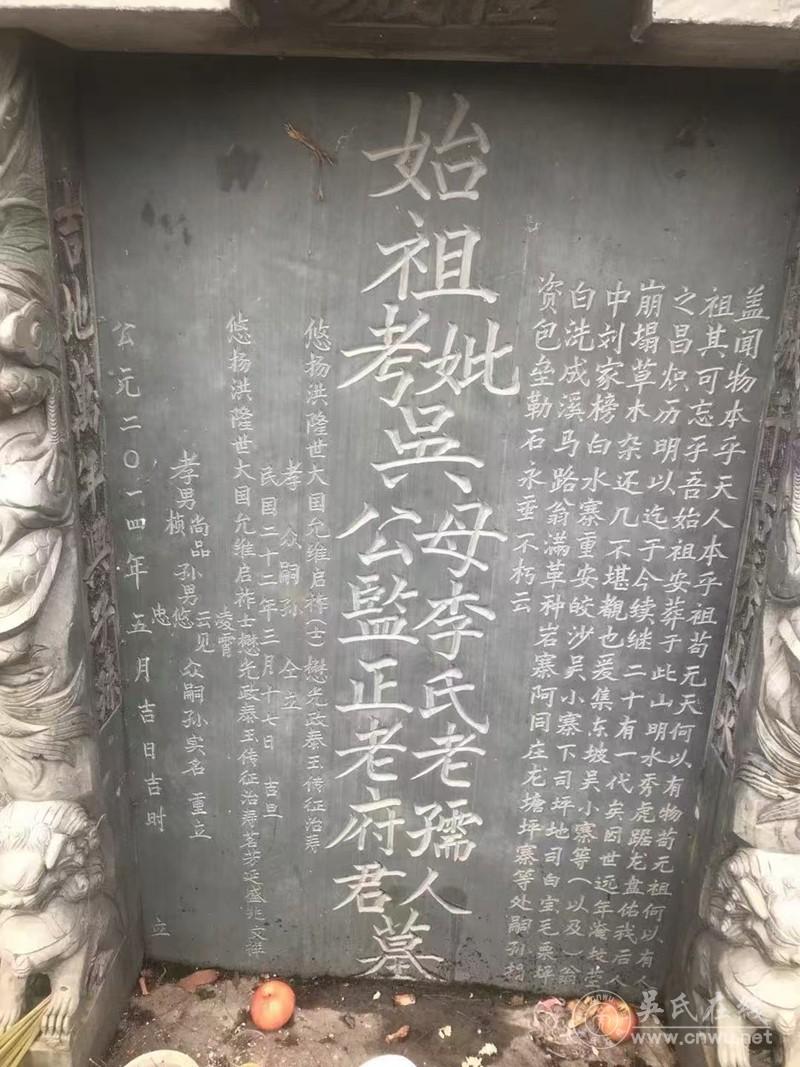 盖闻物本乎天人本乎祖苟元天何以有物苟元祖何以有人
祖其可忘乎吾始祖安葬于此山明水秀虎踞龙盘佑我后人
之昌炽历明以迄于今续继二十有一代矣因世远年淹坟茔
崩塌草木杂还几不堪觏也爰集东坡吴小寨等(以及)翁
中刘家榜白水寨重安皎沙吴小寨下司坪地司白宝毛栗坪
白洗成溪马路翁满草种岩寨阿同庄龙塘坪寨等处嗣孙捐
资包垒勒石永垂不朽云
始祖
妣母李氏老孺人
考吳公監正老府君
墓
悠扬洪隆世大国允维启祚(士)懋光政泰玉传征治寿
孝众嗣孙 仝立
民国二十二年三月十七日 吉旦
悠扬洪隆世大国允维启祚士懋光政泰玉传征治寿茗芳延盛兆文祥
凌霄
孝男尚品 孙男 云见 众嗣孙实名 重立
桢 悠
忠
公元二〇一四年 五月吉日吉时 立
吉地
吴氏在线
www.cnwu.net